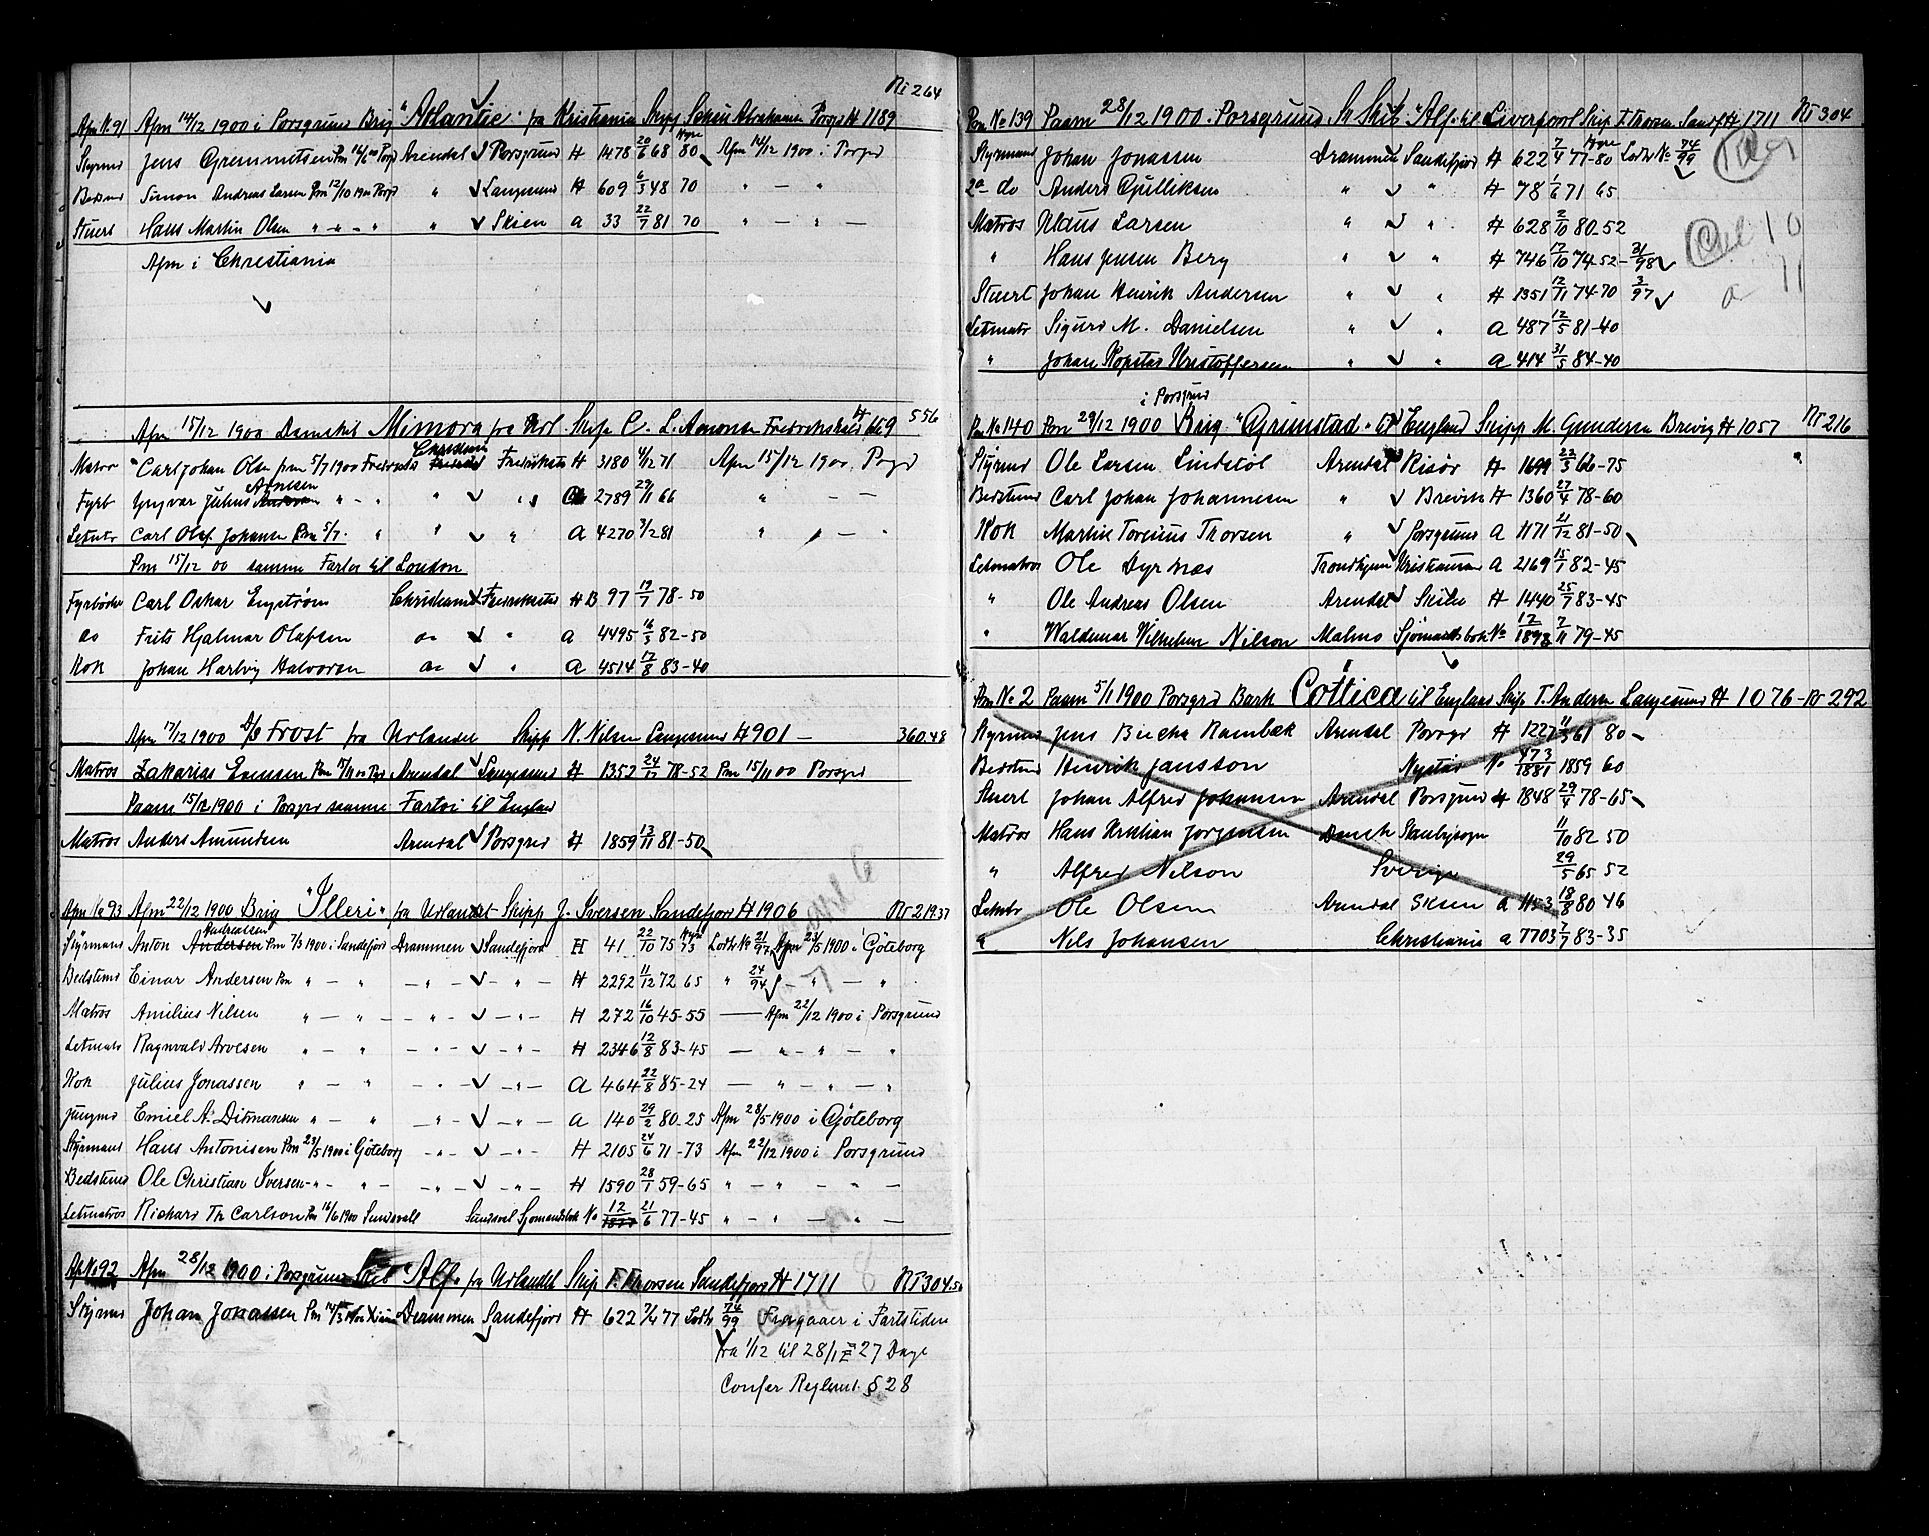 Nt 264
Afm N. 91 Afm 14/12 1900 i Porsgrund Brig "Atlantic" fra Kristiania Skipp Abrahamsen Porsgd H 1189
Styrmd Jens Pm 14/6 00 Porsgd Arendal Porsgrund H 1478 20/6 68 Hyre 80 Afm 14/12 1900 i Porsgd
Bedstmd Simon Andreas Larsen Pm 12/10 1900 Porsgd " Langesund H 609 6/3 48 70 " — "
Stuert Hans Martin Olsen " — " " Skien a 33 22/7 81 70 " — " —
Afm i Christiania
Afm 15/12 1900 Damskib Mimona fra Skip C. L. Fredrikshald H 669 556
Matros Carl Johan Olsen pm 5/7 1900 Fredrikstd Christiania Fredrikstad H 3180 4/12 71 Afm 15/12 1900 Porsgd
Fyrb Yngvar Julius Arnesen " - " " " a 2789 29/11 66 " — —
Letmtr Carl Olaf Johansen Pm 5/7 " " " a 4270 3/2 81 " — "
Pm 15/12 00 samme Fartoi til London
Fyrbøder Carl Oskar Engstrøm Christiania Fredrikstad H B 97 19/7 78-50
do Frits Hjalmar Olafsen do " a 4495 16/3 82-50
Kok Johan Hartvig Halvorsen do " a 4514 17/8 83-40
Afm 17/12 1900 D/S Frost fra Udlandet Skipp N. Nilsen Langesund H 901 — 360.48
Matros Zakarias Evensen Arendal Langesund H 1352 78-52 Pm 15/11 00 Porsgd
Paam 15/12 1900 i Porsgrd samme Fartoi til England
Matros Anders Amundsen Arendal Porsgrd H 1859 13/11 81-50
Afm No 93 Afm 22/12 1900 Brig "Illeri" fra Udlandet Skipp J. Iversen Sandefjord H 1906 Nt 219.37
Styrmand Anton Andreassen Pm 7/3 1900 i Sandefjord Drammen Sandefjord H 41 22/10 75 Hyre 73 Lods No 21/97 Afm 23/5 1900 i Göteborg
Bedstemd Einar Andersen Pm " — " — " — — " — H 2292 11/12 72 65 " 24/94 — " — "
Matros Amilius Nilsen " — " — " — — " — H 272 16/10 45-55 — Afm 22/12 1900 i Porsgrund
Letmatr Ragnvald Arvesen " — " — " — — " — H 2346 12/8 83-45 — " — " — "
Kok Julius Jonassen " — " — " — — " — a 464 22/8 85-24 — " — " — "
Jungmd Emiel A. Ditmansen " — " — " — — " — a 140 29/2 80-25 Afm 28/5 1900 i Göteborg
Styrmand Hans Antonisen Pm 23/5 1900 i Göteborg — " — — " — H 2105 24/6 71-73 Afm 22/12 1900 i Porsgrund
Bedstemd Ole Christian Iversen — " — " — — " — — " — H 1590 28/1 59-65 " — " — " —
Letmatros Richard Th Carlson Pm 16/6 1900 Sundsvall Sundsval Sjomandsbok No 12/1877 21/6 77-45 " — " — " —
Af No 92 Afm 28/12 1900 i Porsgrund Skib "Alf" fra Udlandet Skip T. Thorsen Sandefjord H 1711 Nt 304.50
Styrmd Johan Jonassen Drammen Sandefjord H 622 7/4 77 Lods 74/99 Fragaaer i Fartstiden
fra 1/12 til 28/1 = 27 Dage
Confer Reglmt. § 28
Pm No 139 Paam 28/12 1900 Porsgrund Skib "Alf" til Liverpool Skip T. Thorsen Sandfj H 1711 Nt 304
Styrmand Johan Jonassen Drammen Sandefjord H 622 7/4 77 - Hyre 80 Lods No 74/99
2a do Anders Gulliksen " " H 78 1/6 71 65
Matros Klaus Larsen " " H 628 2/10 80-52
" Hans Jensen Berg " " H 746 12/10 74 52 - 31/98
Stuert Johan Henrik Andersen " " H 1351 12/11 74-70 3/97
Letmatr Sigurd M. Danielsen " " a 487 12/5 81-40
" Johan Kopstad Kristoffersen " " a 414 31/5 84-40
i Porsgrund
Pm No 140 Pm 29/12 1900 Brig "Grimstad" til England Skipp M. Gundersen Brevig H 1057 Nt 216
Styrmd Ole Larsen Lindstöl Arendal Risör H 1699 22/3 66-75
Bedstemd Carl Johan Johannesen " Brevik H 1360 27/4 78-60
Kok Martin Torenius Thorsen " Porsgrund a 1171 21/12 81-50
Letmatros Ole Dyrnæs Trondhjem Kristiansund a 2169 15/1 82-45
" Ole Andreas Olsen Arendal Skien H 1440 25/7 83-45
" Waldemar Wilhelm Nilson Malmo Sjömandsbok No 12/1898 7/11 79-45
Pm No 2 Paam 5/1 1900 Porsgrd Bark Cottica til England Skip T. Andersen Langesund H 1076 - Nt 292
Styrmd Jens Rambæk Arendal Porsgr H 1227 11/3 61 80
Bedstemd Henrik Jansson Nystad No 473/1881 1859 60
Stuert Johan Alfred Johansen Arendal Porsgrund H 1848 29/4 78-65
Matros Hans Kristian Jorgensen Dansk 11/10 82 50
" Alfred Nilson Sverige 29/5 65 52
Letmtr Ole Olsen Arendal Skien a 1153 18/8 80 46
" Nils Johansen Christiania a 7703 7/7 83-35